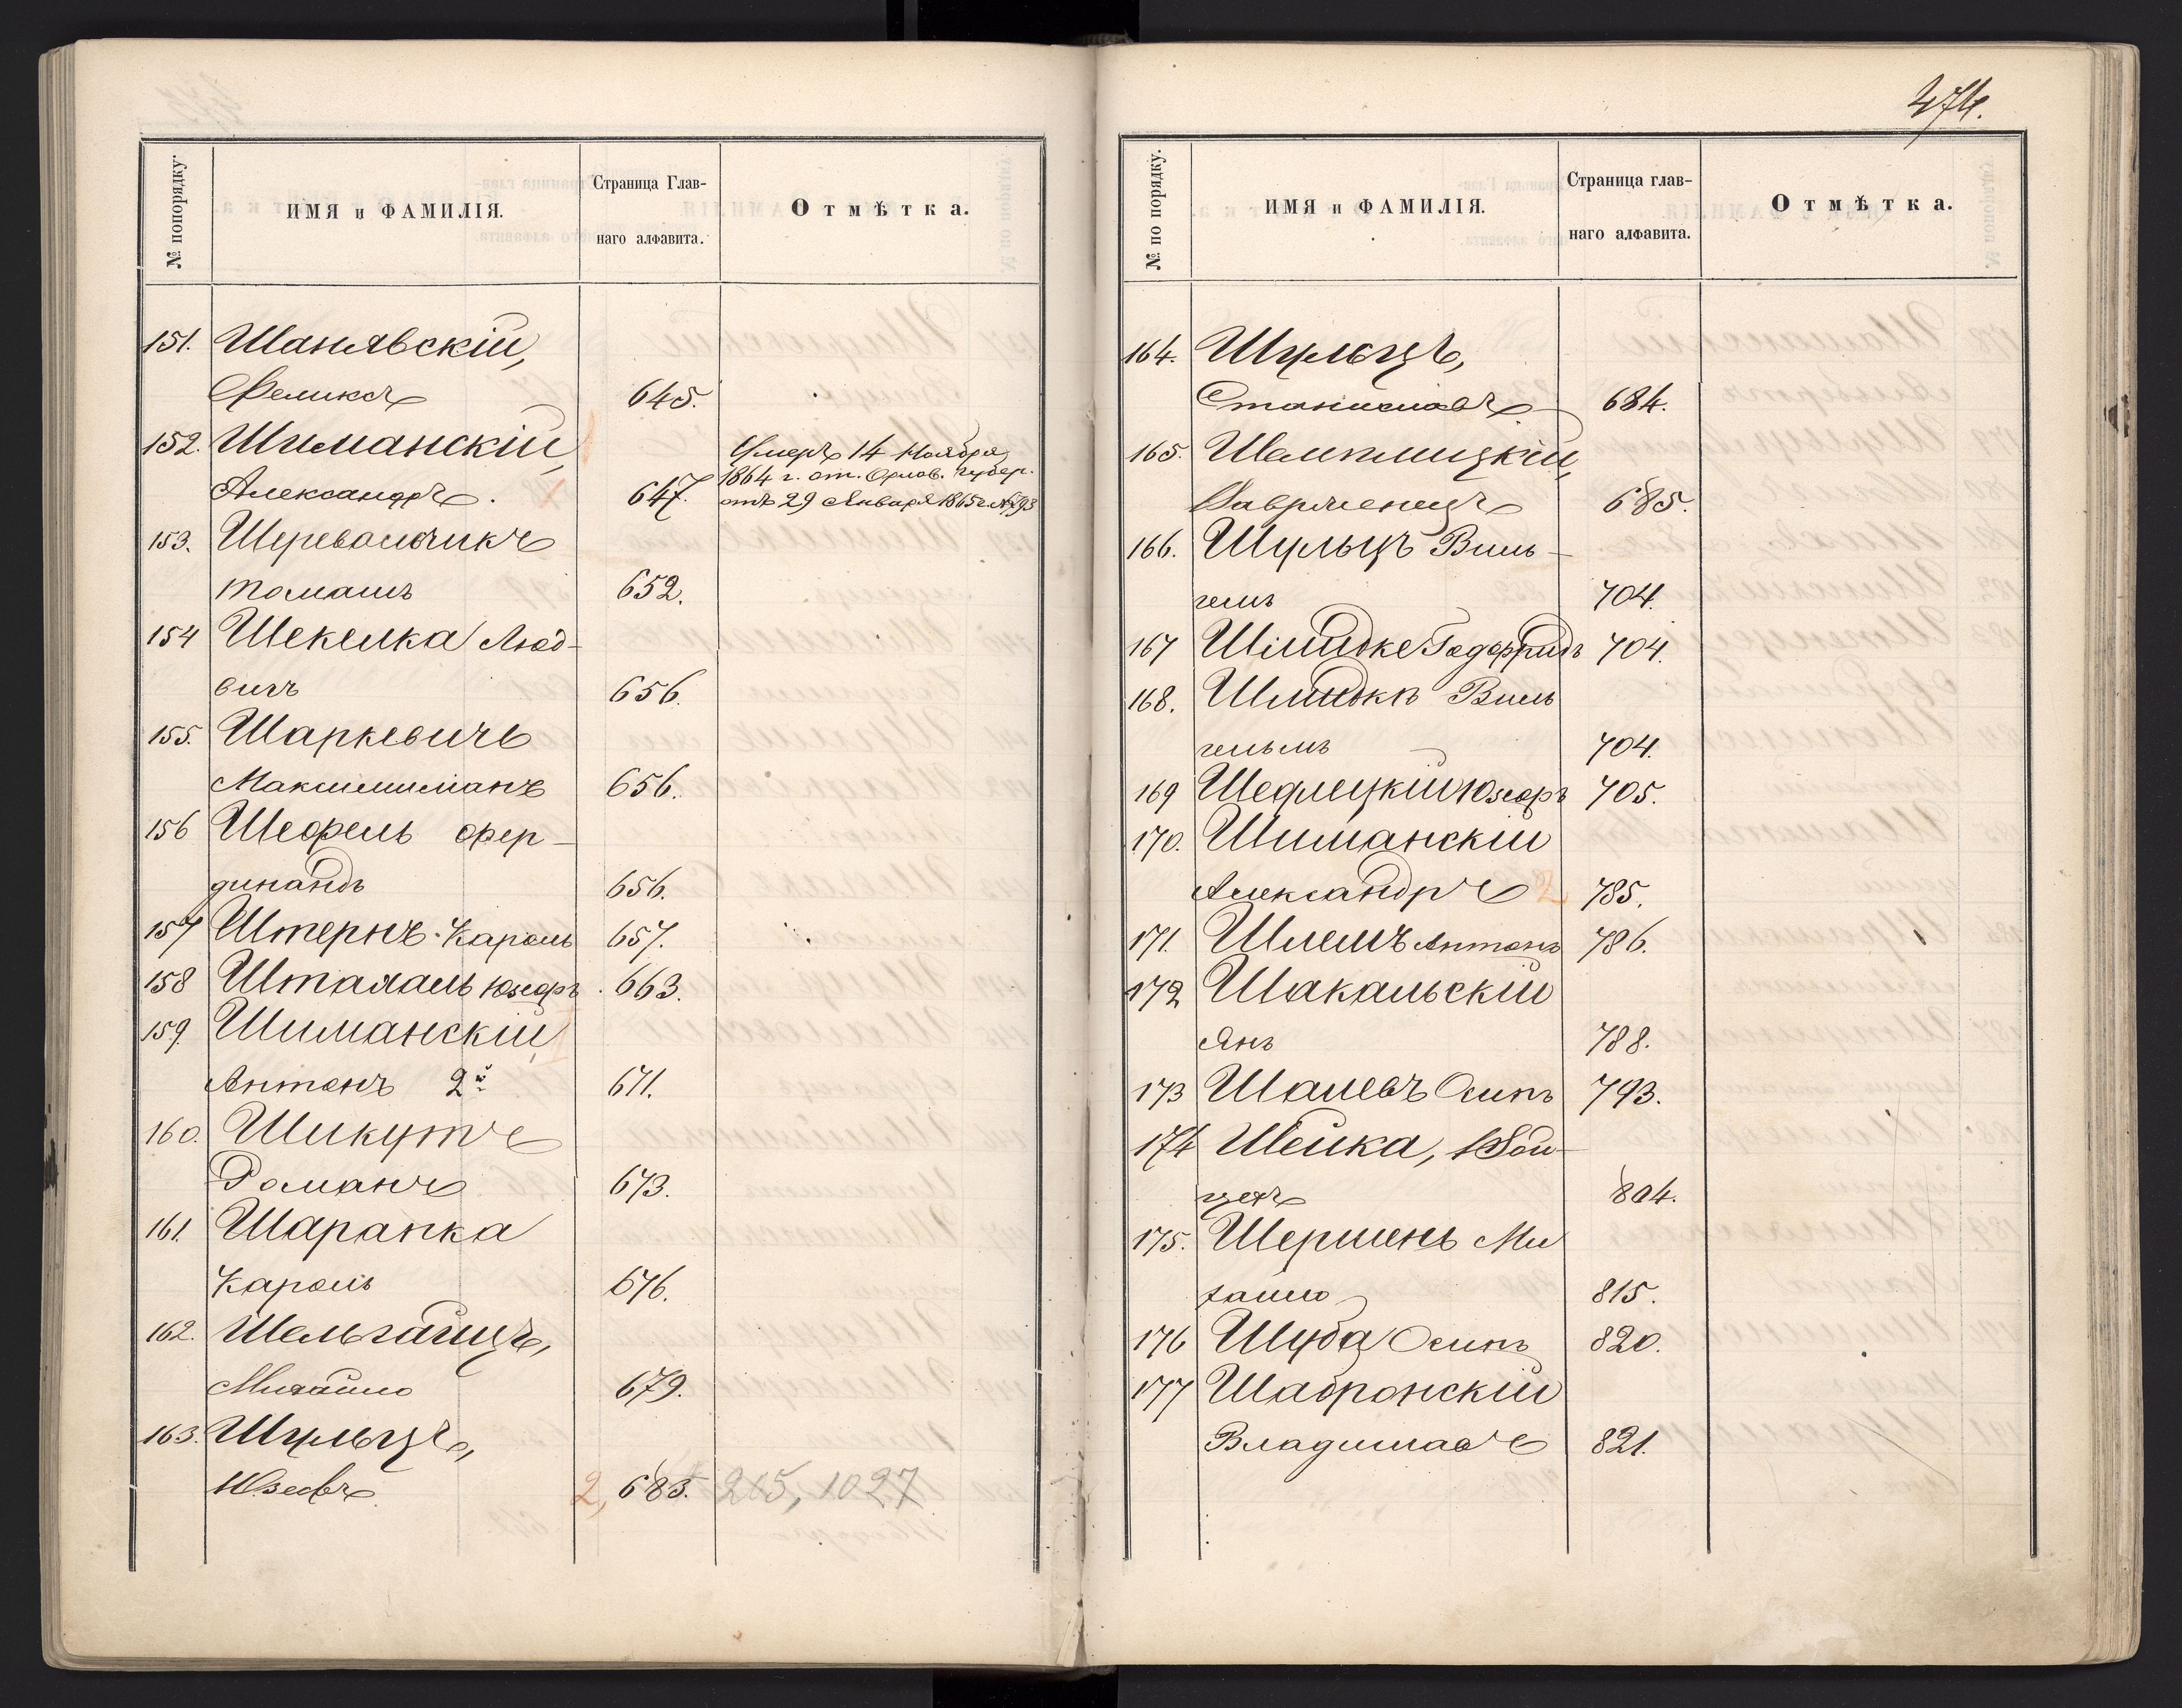 № попорядку.
ИМЯ и ФАМИЛІЯ.
Страница Глав-
наго алфавита.
Отмѣтка.
151. Шанявскій,
Феликсъ 645.
152. Шиманскій,
Александръ. 647.
Умеръ 14 Ноября
1864 г. от. Орлов. губер.
отъ 29 Января 1865 г. №293
153. Щеревальчикъ
Томашъ 652.
154 Шекелка Люд-
вигъ 656.
155. Шаркевичъ
Максимиліанъ 656.
156 Шефель Фер-
динандъ 656.
157 Штернъ Кароль 657.
158 Юзефъ 663.
159. Шиманскій,
Антонъ 2й 671.
160. Шикутъ
Романъ 673.
161. Шарапка
Кароль 676.
162. Шельгайцъ,
Михайло 679.
163. Шульцъ,
Юзефъ 2, 683. 265, 1027
474.
№ по порядку.
ИМЯ и ФАМИЛІЯ.
Страница глав-
наго алфавита.
Отмѣтка.
164. Шульцъ,
Станиславъ 684.
165. Шемплицкій,
Лаврженецъ 685.
166. Шульцъ Виль-
гемъ 704.
167 Шмидке Годфридъ 704.
168. Шмидке Виль
гельмъ 704.
169 Шедлецкій Юзефъ 705.
170. Шиманскій
Александръ 2 785.
171. Шлемъ Антонъ 786.
172 Шакальскій
Янъ 788.
173 Шалевъ Осипъ 793.
174 Шейка, Вой-
цехъ 804.
175. Шершень Ми
хайло 815.
176 Шуба Осипъ 820.
177 Шабронскій
Владиславъ 821.